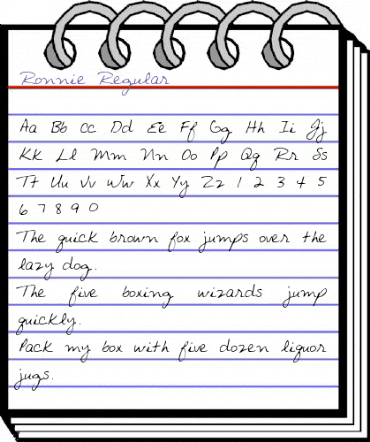 Ronnie Regular
Aa Bb Cc Dd Ee Ff Gg Hh Ii Jj
Kk Ll Mm Nn Oo Pp Qq Rr Ss
Tt Uu Vv Ww Xx Yy Zz 1 2 3 4 5
6 7 8 9 0
The quick brown fox jumps over the
lazy dog.
The five boxing wizards jump
quickly.
Pack my box with five dozen liquor
jugs.